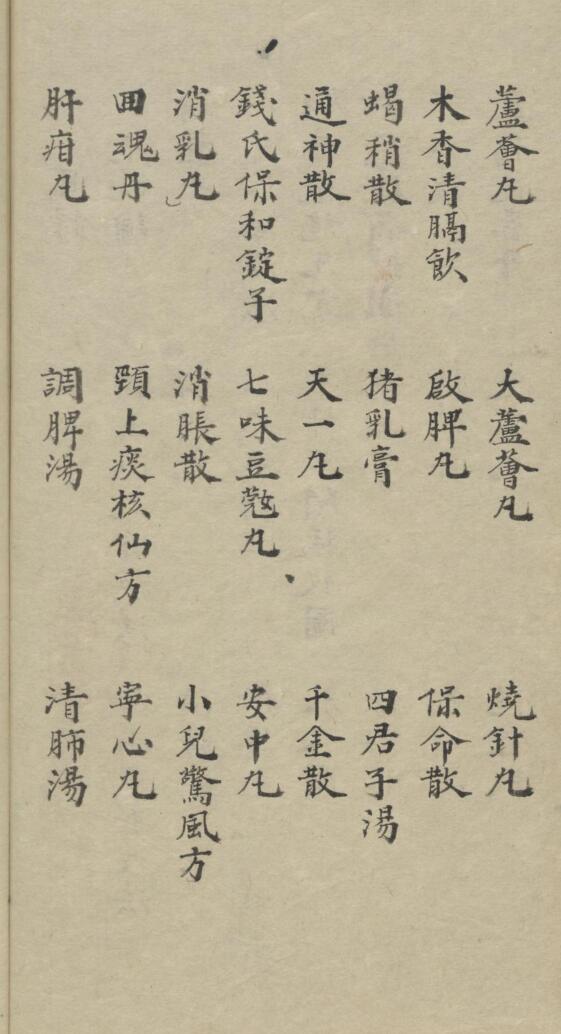 蘆薈丸　大蘆薈丸　燒針丸
木香清膈飲　啟脾丸　保命散
蝎稍散　猪乳膏　四君子湯
通神散　天一丸　千金散
錢氏保和錠子　七味豆蔲丸　安中丸
消乳丸　消脹散　小兒驚風方
囬魂丹　頸上痰核仙方　寧心丸
肝疳丸　調脾湯　清肺湯